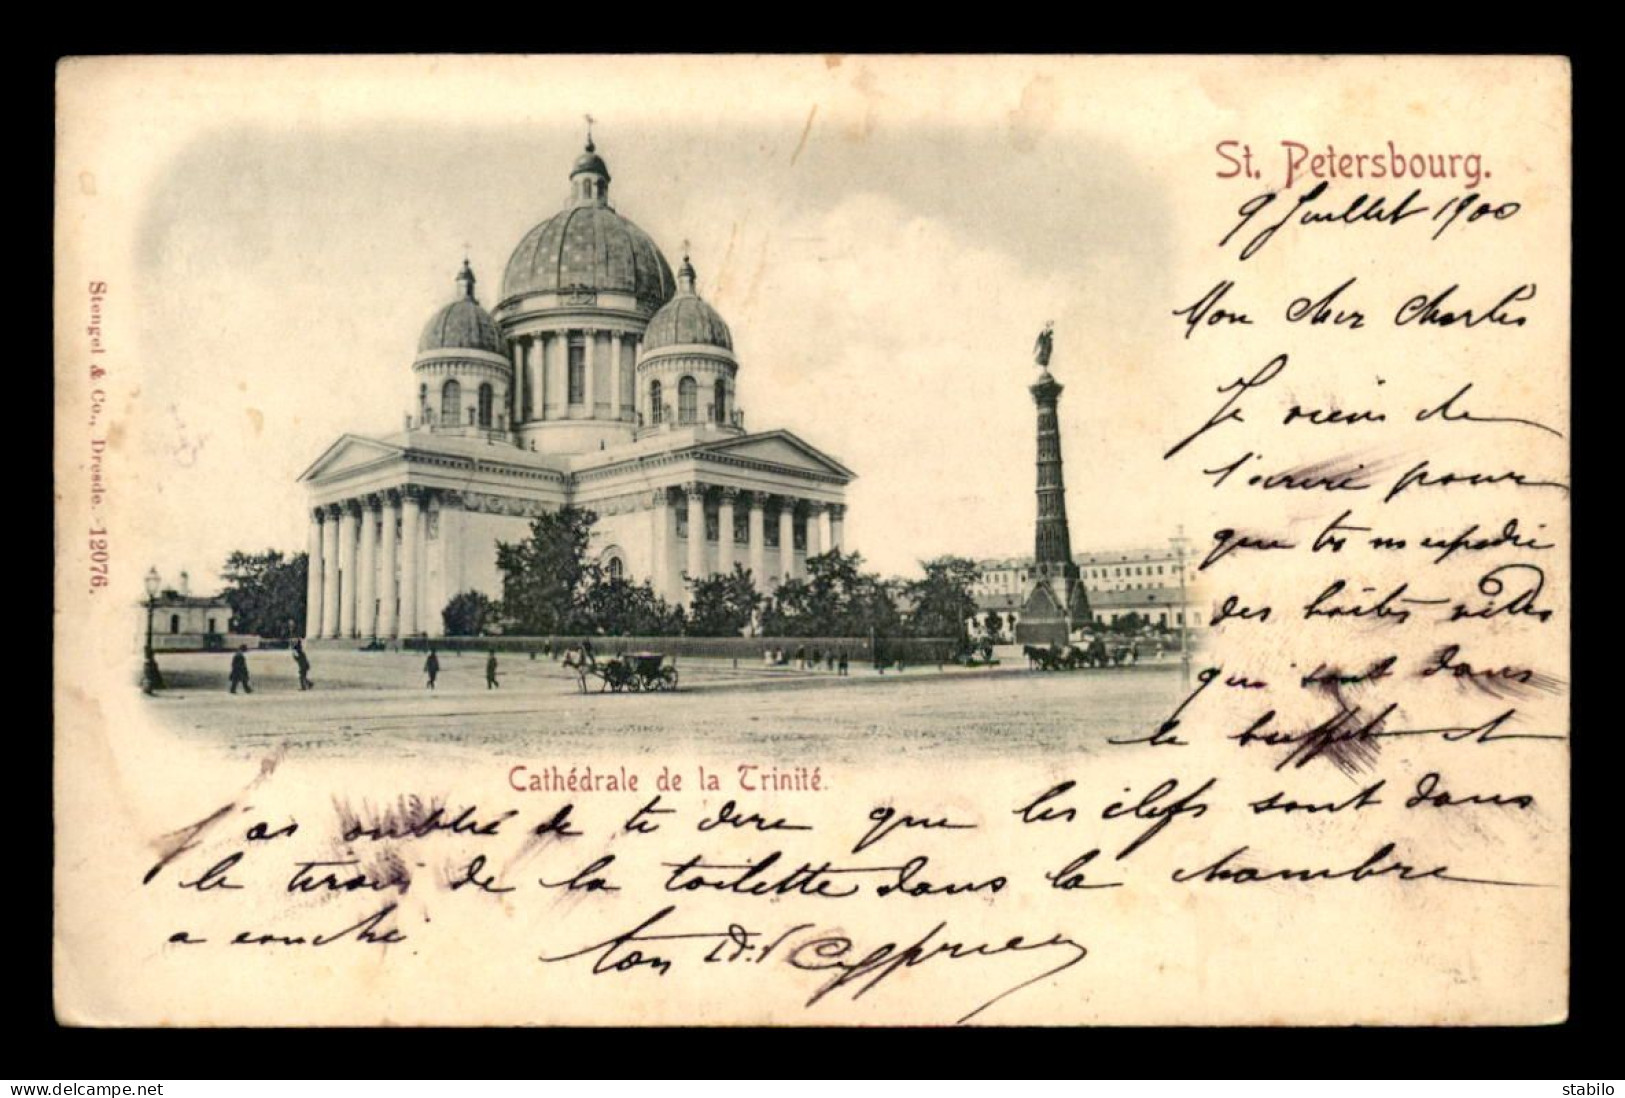 St. Petersbourg.
9 Juillet 1900
Mon cher Charles
Je viens de
t'écrire pour
que tu m'expédie
des boîtes vides
qui sont dans
le buffet et
j'ai oublié de te dire que les clefs sont dans
le tiroir de la toilette dans la chambre
a couché
ton Cyprien
Cathédrale de la Trinité.
Stengel & Co., Dresde. 12076.
www.delcampe.net
stabilo